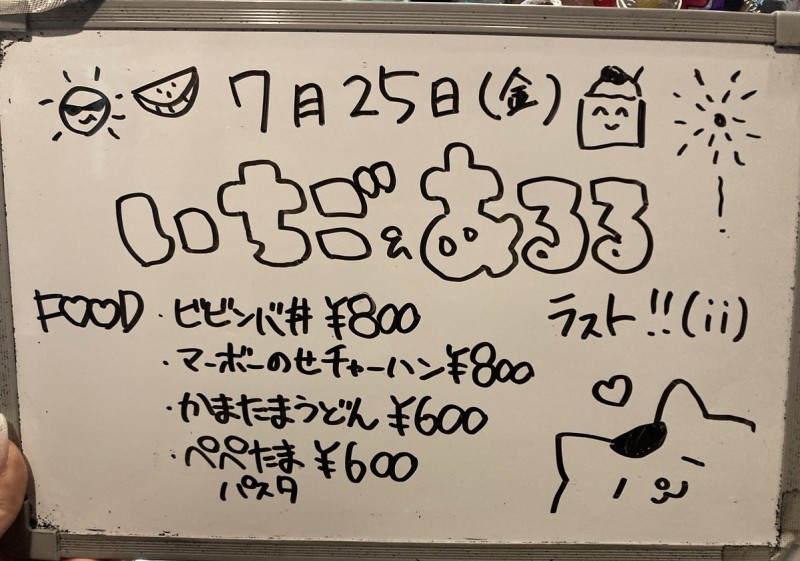 7月25日(金)
いちご&まるる
FOOD
・ビビンバ丼 ¥800
・マーボーのせチャーハン ¥800
・かまたまうどん ¥600
・ぺぺたま ¥600
パスタ
ラスト!!(ii)